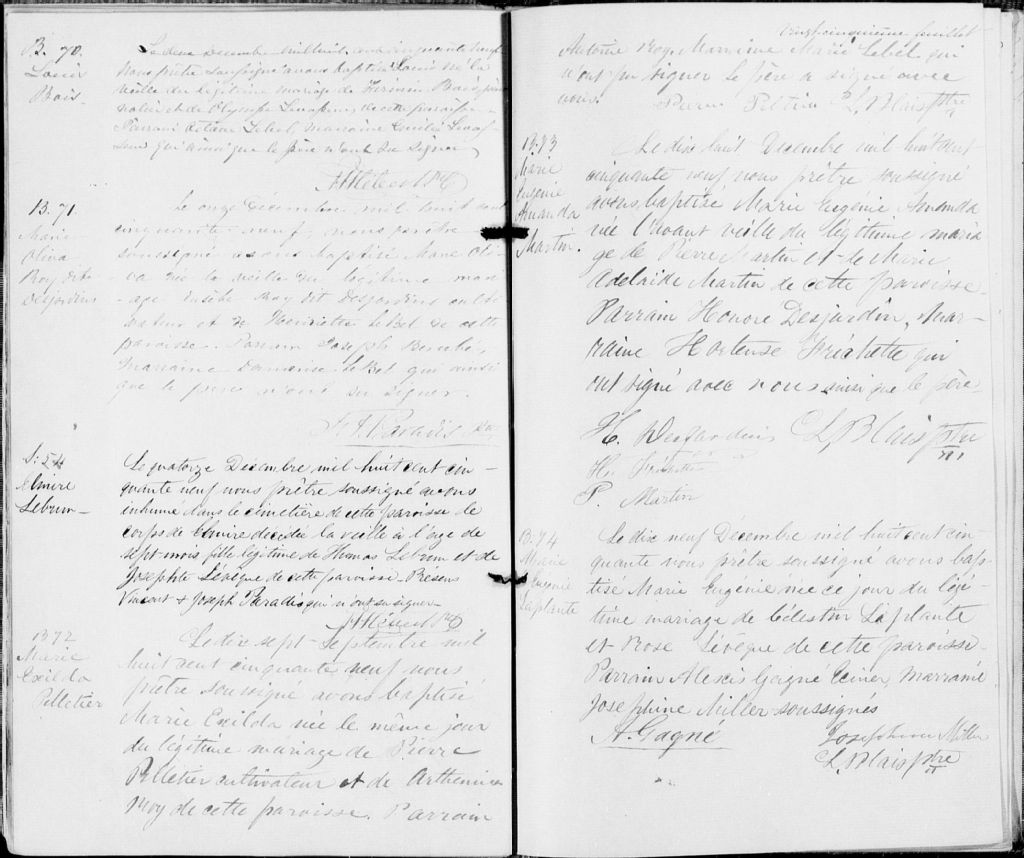 B. 70.
Louis
Bois.
Le deux Decembre mil huit cent cinquante neuf
Nous prêtre soussigné avons baptisé Louis né la
veille du légitime mariage de Firmin Bois, jour
nalier et de Olympe de cette paroisse
Parrain Octave Lebel, marraine Emilie
qui ainsi que le père n'ont su signer
B. 71
Marie
Olina
Roy dit
Desjardins
Le onze Décembre mil huit cent
cinquante neuf, nous prêtre
soussigné avons baptisé Marie Oli-
na née la veille du légitime mari-
age de Roy dit Desjardins culti
vateur et de Henriette Lebel de cette
paroisse. Parrain Joseph
Marraine Damasse Lebel qui ainsi
que le père n'ont su signer.
S: 54
Elmire
Lebrun—
Le quatorze Décembre mil huit cent cin-
quante neuf nous prêtre soussigné avons
inhumé dans le cimetière de cette paroisse le
corps de Elmire décédée la veille à l'age de
sept mois fille légitime de Thomas Lebrun et de
Josephte Lévêque de cette paroisse. Présens
Vincent & Joseph Paradis qui n'ont su signer—
B 72
Marie
Exilda
Pelletier
Le dix sept Septembre mil
huit cent cinquante neuf nous
prêtre soussigné avons baptisé
Marie Exilda née le même jour
du légitime mariage de Pierre
Pelletier cultivateur et de Arthemise
Roy de cette paroisse. Parrain
Vingt cinquième feuillet
Antoine Roy, Marraine Marie Lebel qui
n'ont pu signer Le père a signé avec
nous. Pierre Peltier C. L. Blais ptre
B. 73
Marie
Eugénie
Amanda
Martin.
Le dix huit Decembre mil huit cent
cinquante neuf nous prêtre soussigné
avons baptisé Marie Eugénie Amanda
née l'avant veille du légitime maria
ge de Pierre Martin et de Marie
Adelaide Martin de cette paroisse.
Parrain Honore Desjardin, Mar-
raine Hortense Fréchette qui
ont signé avec nous ainsi que le père
H. Desjardins C. L. Blais ptre
Hse Fréchette
P. Martin
B. 74
Marie
Eugenie
Laplante
Le dix neuf Decembre mil huit cent cin-
quante nous prêtre soussigné avons bap-
tisé Marie Eugénie née ce jour du légi-
time mariage de Célestin Laplante
et Rose Lévêque de cette paroisse.
Parrain Alexis Gagné Ecuier, Marraine
Josephine Miller soussignés
A. Gagné Josephine Miller
C. L. Blais ptre